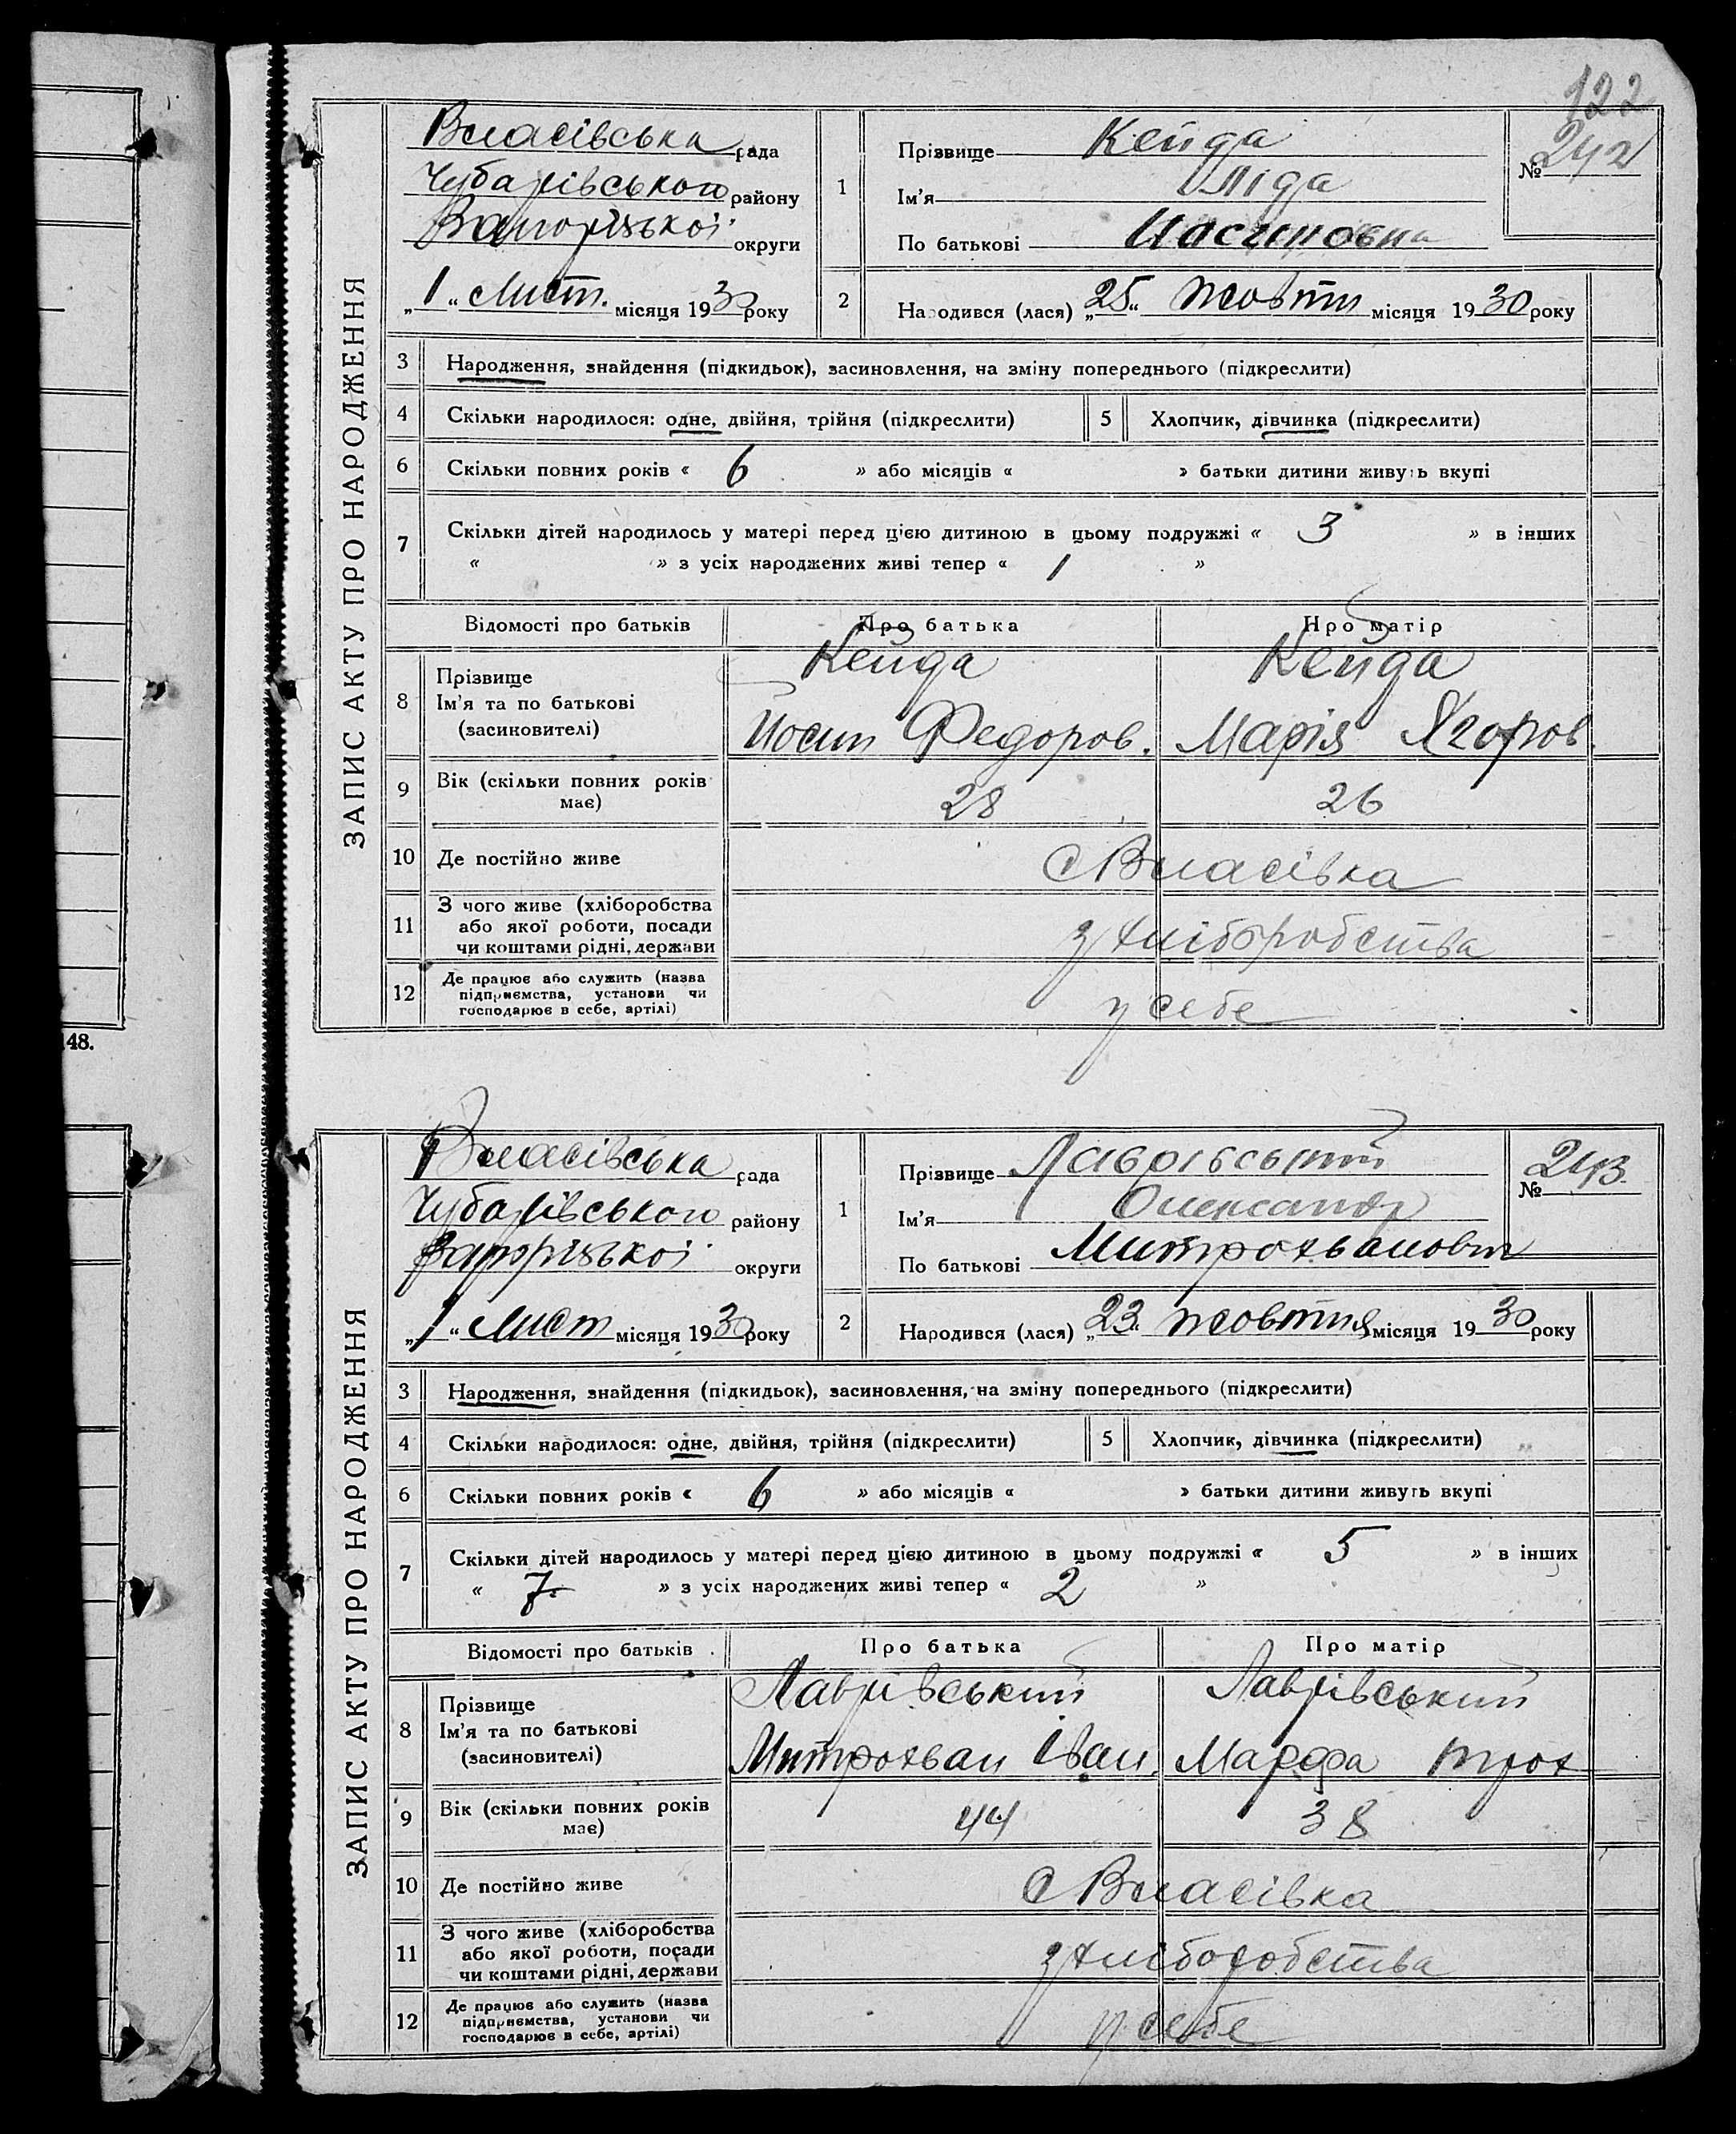 122
ЗАПИС АКТУ ПРО НАРОДЖЕННЯ
Власівська рада
Чубарівського району
Запорізької округи
„1“ Лист. місяця 1930 року
1
Прізвище Кейда
Ім'я Ліда
По батькові Иосиповна
№ 242
2
Народився (лася) „25“ Жовтн місяця 1930 року
3 Народження, знайдення (підкидьок), засиновлення, на зміну попереднього (підкреслити)
4 Скільки народилося: одне, двійня, трійня (підкреслити) 5 Хлопчик, дівчинка (підкреслити)
6 Скільки повних років « 6 » або місяців « » батьки дитини живуть вкупі
7 Скільки дітей народилось у матері перед цією дитиною в цьому подружжі « 3 » в інших
« » з усіх народжених живі тепер « 1 »
Відомості про батьків Про батька Про матір
8 Прізвище
Ім'я та по батькові
(засиновителі)
Кейда Кейда
Иосип Федоров. Марія Ягоров.
9 Вік (скільки повних років має) 28 26
10 Де постійно живе с Власівка
11 З чого живе (хліборобства
або якої роботи, посади
чи коштами рідні, держави
з хліборобства
12 Де працює або служить (назва
підприємства, установи чи
господарює в себе, артілі)
у себе
148.
ЗАПИС АКТУ ПРО НАРОДЖЕННЯ
Власівська рада
Чубарівського району
Запорізької округи
„1“ Лист місяця 1930 року
1
Прізвище Лаврівський
Ім'я Олександр
По батькові Митрохванович
№ 243
2
Народився (лася) „23“ Жовтня місяця 1930 року
3 Народження, знайдення (підкидьок), засиновлення, на зміну попереднього (підкреслити)
4 Скільки народилося: одне, двійня, трійня (підкреслити) 5 Хлопчик, дівчинка (підкреслити)
6 Скільки повних років « 6 » або місяців « » батьки дитини живуть вкупі
7 Скільки дітей народилось у матері перед цією дитиною в цьому подружжі « 5 » в інших
« 7 » з усіх народжених живі тепер « 2 »
Відомості про батьків Про батька Про матір
8 Прізвище
Ім'я та по батькові
(засиновителі)
Лаврівський Лаврівський
Митрохван Іван. Марфа Трох
9 Вік (скільки повних років має) 44 38
10 Де постійно живе с Власівка
11 З чого живе (хліборобства
або якої роботи, посади
чи коштами рідні, держави
з хліборобства
12 Де працює або служить (назва
підприємства, установи чи
господарює в себе, артілі)
у себе